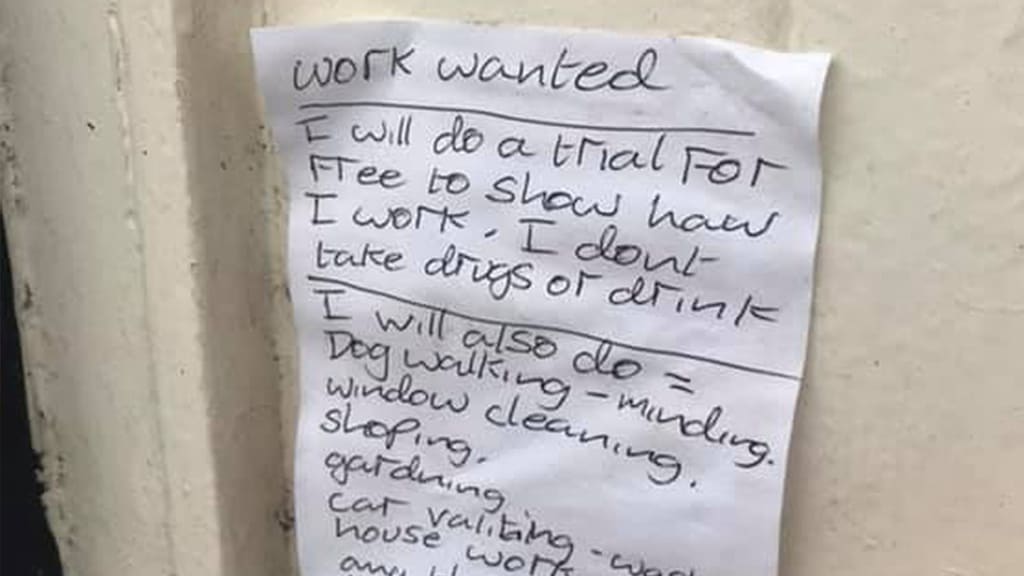 work wanted
I will do a trial For
Free to show how
I work. I dont
take drugs or drink
I will also do =
Dog walking - minding.
window cleaning.
shoping.
gardning
car valiting -
house work